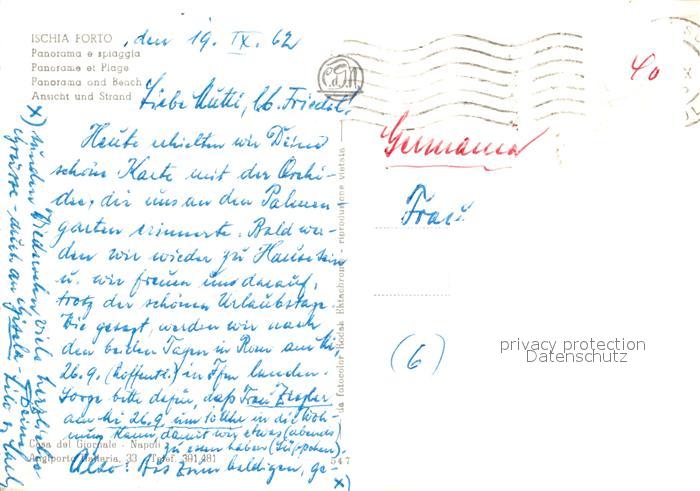 ISCHIA PORTO
Panorama e spiaggia
Panorame et Plage
Panorama and Beach
Ansicht und Strand
, den 19. IX. 62
Liebe Mutti, lb. Friedel!
Heute erhielten wir Deine
schöne Karte mit der Orchi-
dee, die uns an den Palmen-
garten erinnerte. Bald wer-
den wir wieder zu Hause sein
u. wir freuen uns darauf,
trotz der schönen Urlaubstage.
Wie gesagt, werden wir nach
den beiden Tagen in Rom am Mi.
26.9. (hoffentl.) in Ffm landen.
Sorge bitte dafür, daß Frau Ziegler
am Mi 26.9. um 10 Uhr in die Woh-
nung kann, damit wir etwas (abends)
zu essen haben (Süppchen).
Also: Bis zum baldigen, ge-
x)
x) sunden Wiedersehn, viele herzliche
Grüsse - auch an Gisela -
Deine
Casa del Giornale - Napoli
Angiporto Galleria, 33 - Telef. 391.481
547
da fotocolor Kodak Ektachrome - riproduzione vietata
40
Germania
Frau
(6)
privacy protection
Datenschutz